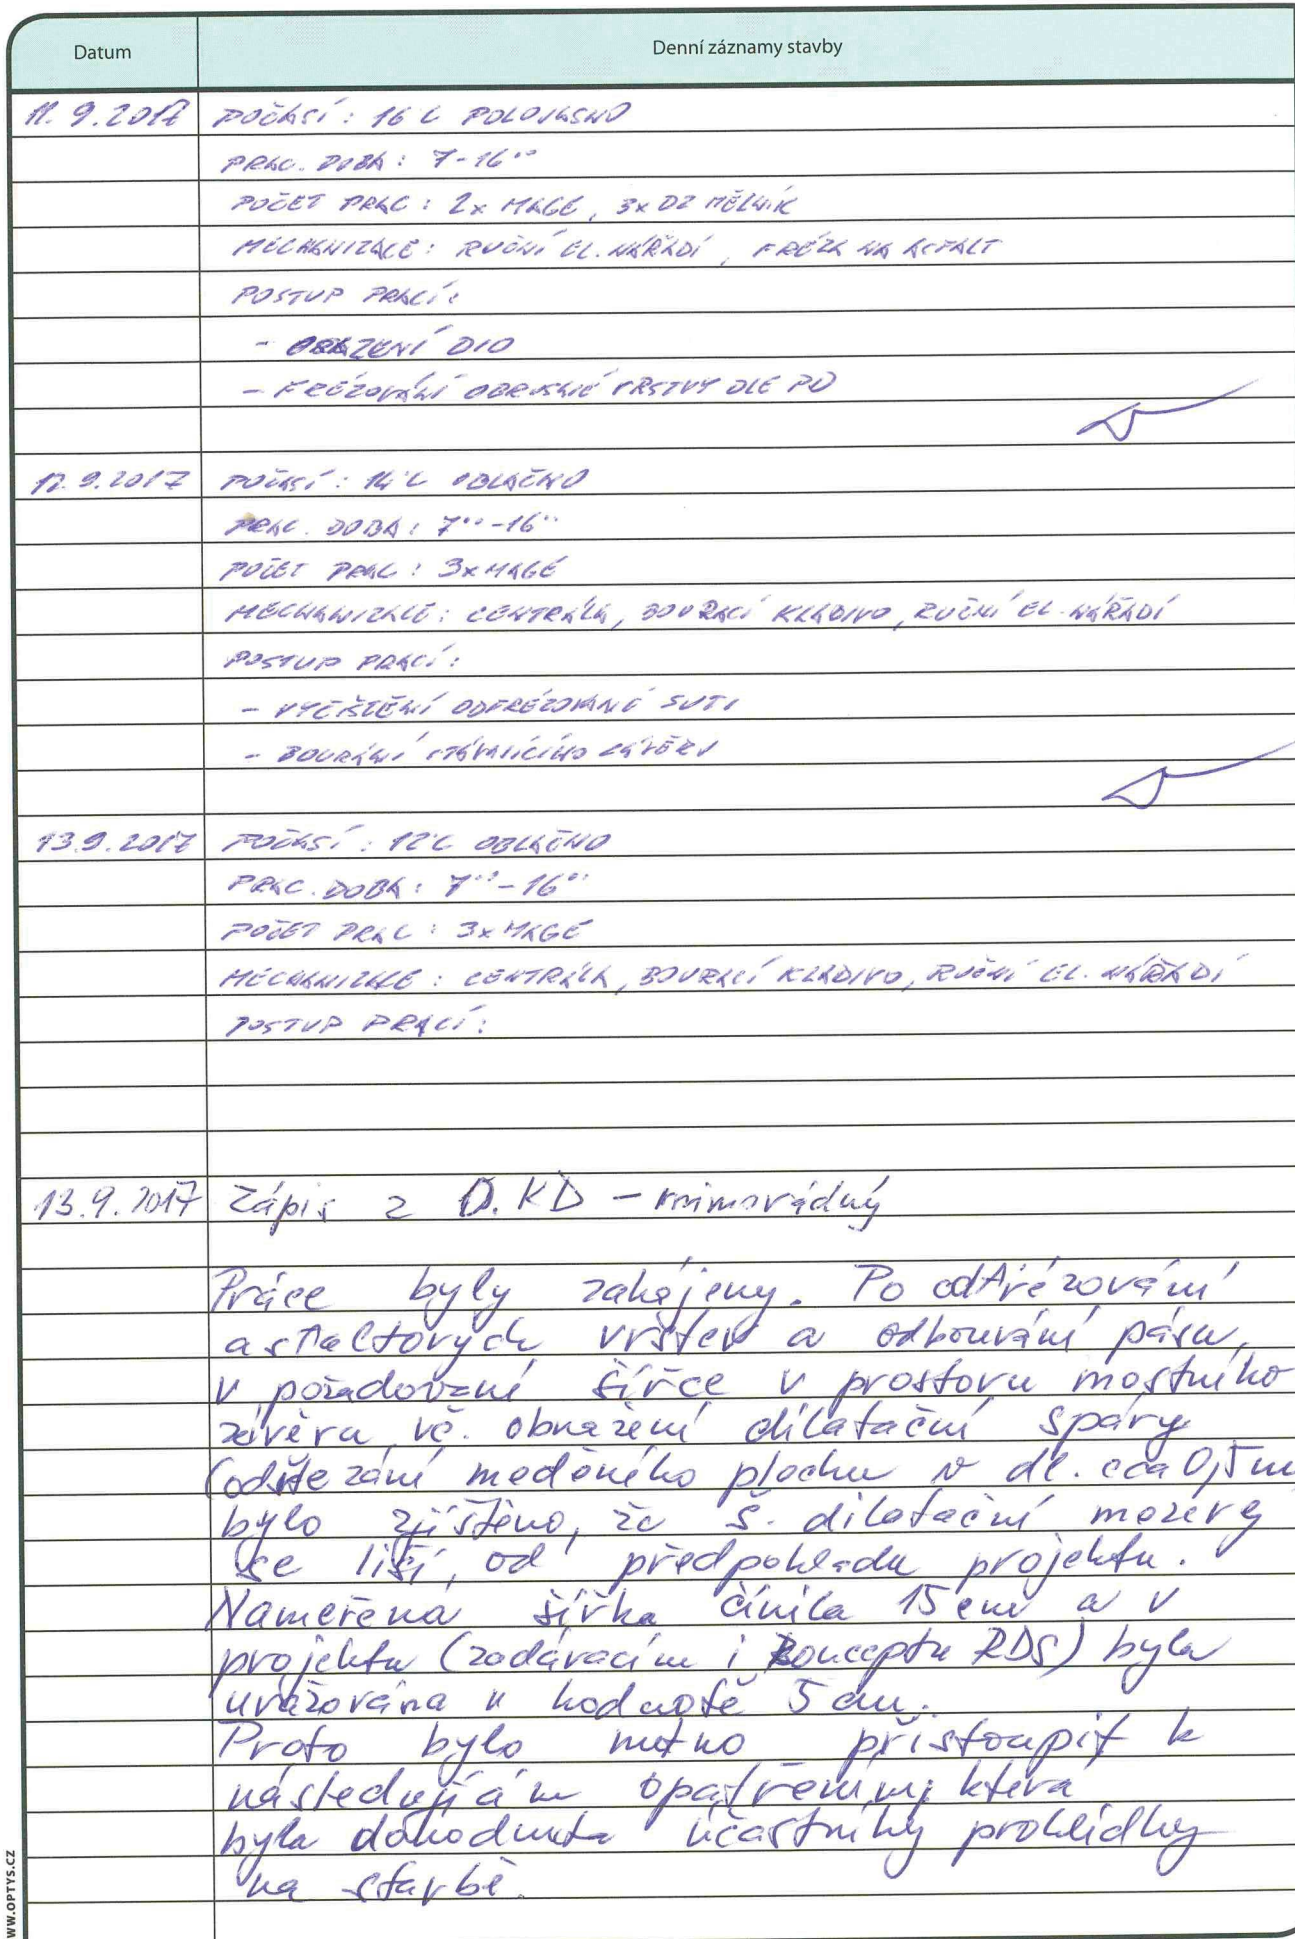 Datum
Denní záznamy stavby
11.9.2017 POČASÍ: 16°C POLOJASNO
PRAC. DOBA: 7-16°°
POČET PRAC: 2x MAGE, 3x DZ MĚLNÍK
MECHANIZACE: RUČNÍ EL. NÁŘADÍ, FRÉZA NA ASFALT
POSTUP PRACÍ:
- OSAZENÍ DIO
- FRÉZOVÁNÍ OBRUSNÉ VRSTVY DLE PD
12.9.2017 POČASÍ: 14°C OBLAČNO
PRAC. DOBA: 7°°-16°°
POČET PRAC: 3x MAGE
MECHANIZACE: CENTRÁLA, BOURACÍ KLADIVO, RUČNÍ EL. NÁŘADÍ
POSTUP PRACÍ:
- VYČIŠTĚNÍ ODFRÉZOVANÉ SUTI
- BOURÁNÍ STÁVAJÍCÍHO ZÁVĚRU
13.9.2017 POČASÍ: 12°C OBLAČNO
PRAC. DOBA: 7°°-16°°
POČET PRAC: 3x MAGE
MECHANIZACE: CENTRÁLA, BOURACÍ KLADIVO, RUČNÍ EL. NÁŘADÍ
POSTUP PRACÍ:
13.9.2017 Zápis z 0. KD - mimořádný
Práce byly zahájeny. Po odfrézování
asfaltových vrstev a odbourání pásu,
v požadované šířce v prostoru mostního
závěru, vč. obnažení dilatační spáry
(odřezání měděného plechu v dl. cca 0,5m
bylo zjištěno, že š. dilatační mezery
se liší, od předpokladu projektu.
Naměřená šířka činila 15 cm a v
projektu (zadávacím i konceptu RDS) byla
uvažována v hodnotě 5 cm.
Proto bylo nutno přistoupit k
následujícím opatřením, která
byla dohodnuta účastníky prohlídky
na stavbě.
WW.OPTYS.CZ